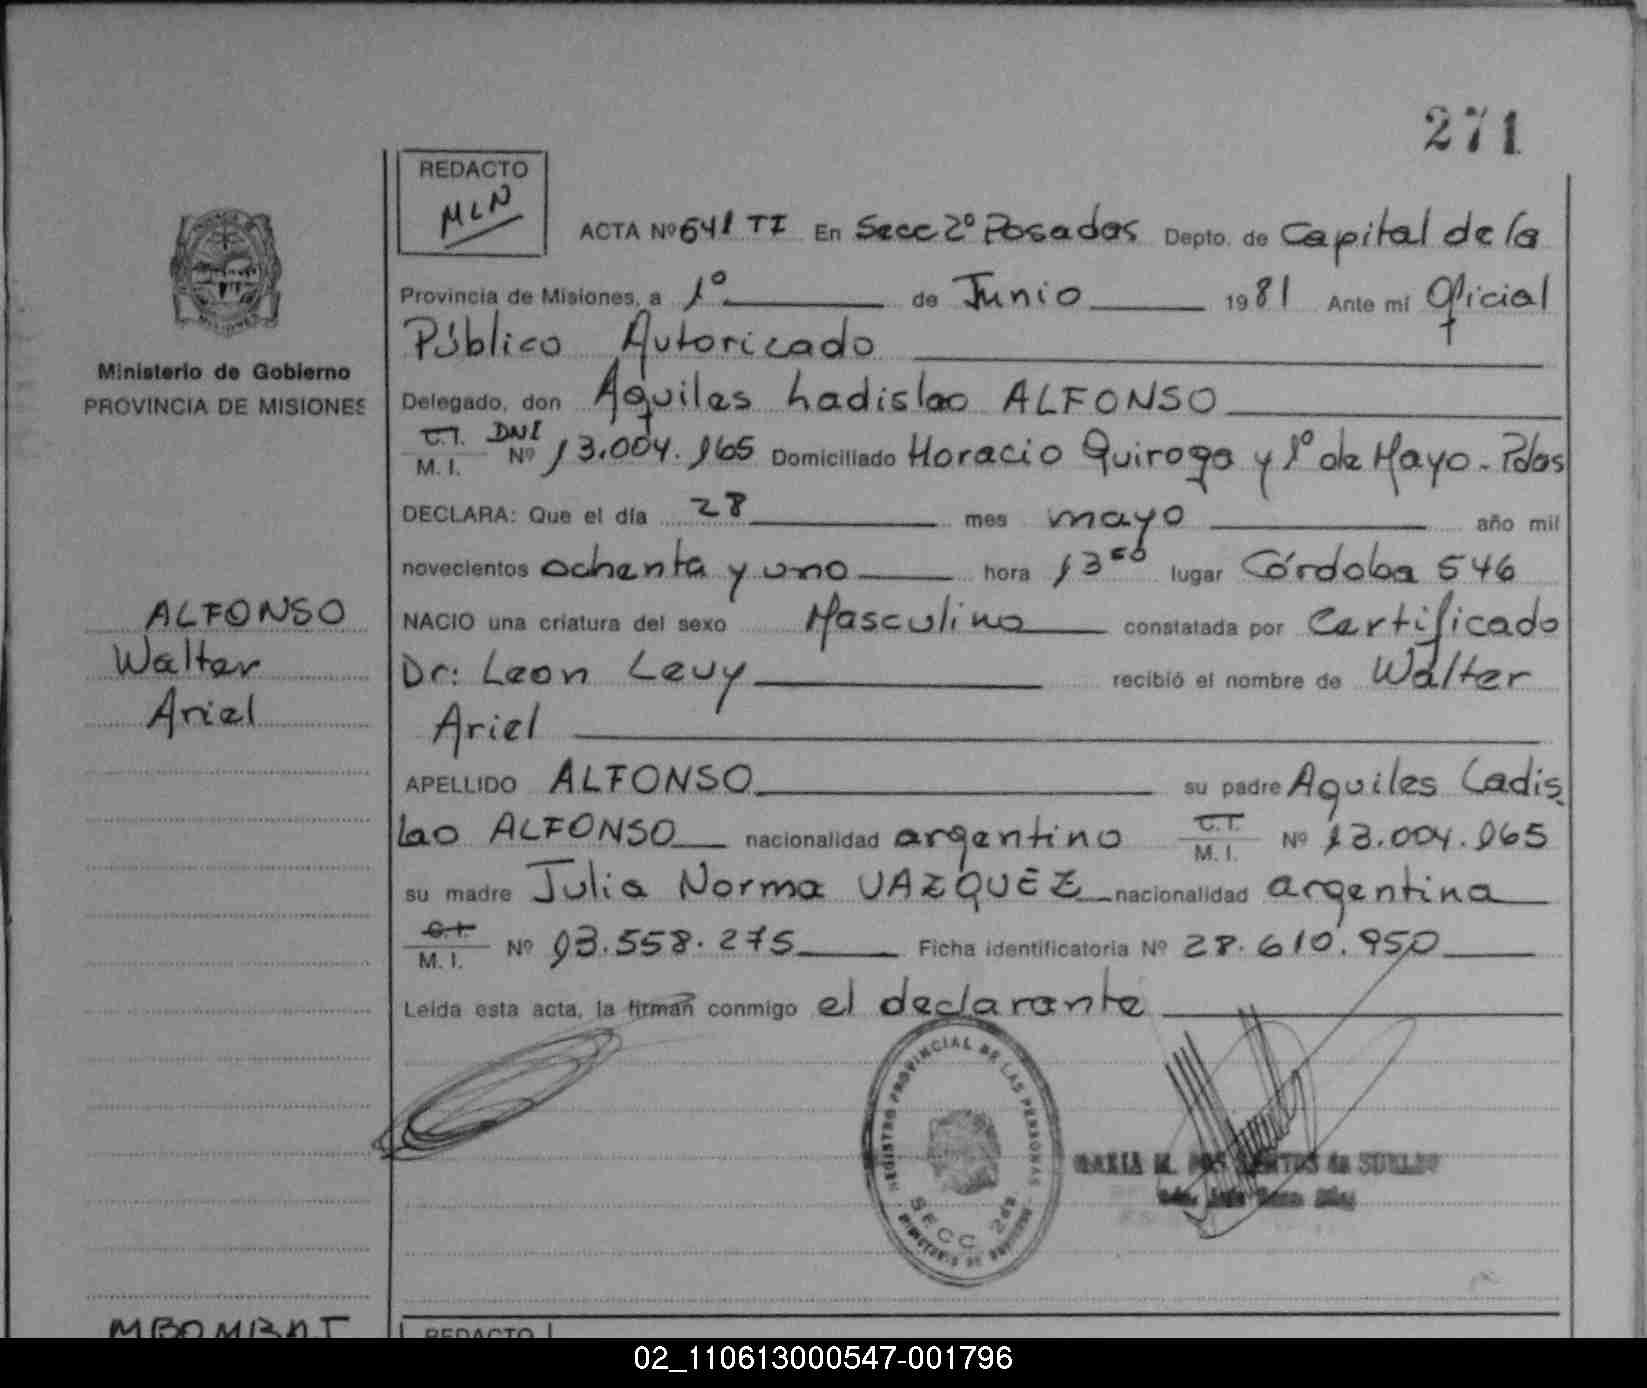 271
REDACTO
MLN
ACTA Nº 641 TI En Secc 2º Posadas Depto. de Capital de la
Provincia de Misiones, a 1º de Junio 1981 Ante mí Oficial
Público Autoricado
Ministerio de Gobierno
PROVINCIA DE MISIONES
Delegado, don Aquiles Ladislao ALFONSO
C.I. DNI
M. I. Nº 13.004.165 Domiciliado Horacio Quiroga y 1º de Mayo - Pdas
DECLARA: Que el día 28 mes mayo año mil
novecientos ochenta y uno hora 13 50 lugar Córdoba 546
ALFONSO
NACIO una criatura del sexo Masculino constatada por Certificado
Walter
Dr: Leon Levy recibió el nombre de Walter
Ariel
Ariel
APELLIDO ALFONSO su padre Aquiles Ladis
lao ALFONSO nacionalidad argentino C.I. M. I. Nº 13.004.165
su madre Julia Norma VAZQUEZ nacionalidad argentina
C.I.
M. I. Nº 13.558.275 Ficha identificatoria Nº 28.610.950
Leída esta acta, la firman conmigo el declarante
REGISTRO PROVINCIAL DE LAS PERSONAS
SECC 2da
MARIA M. DOS SANTOS de
REDACTO
02_110613000547-001796